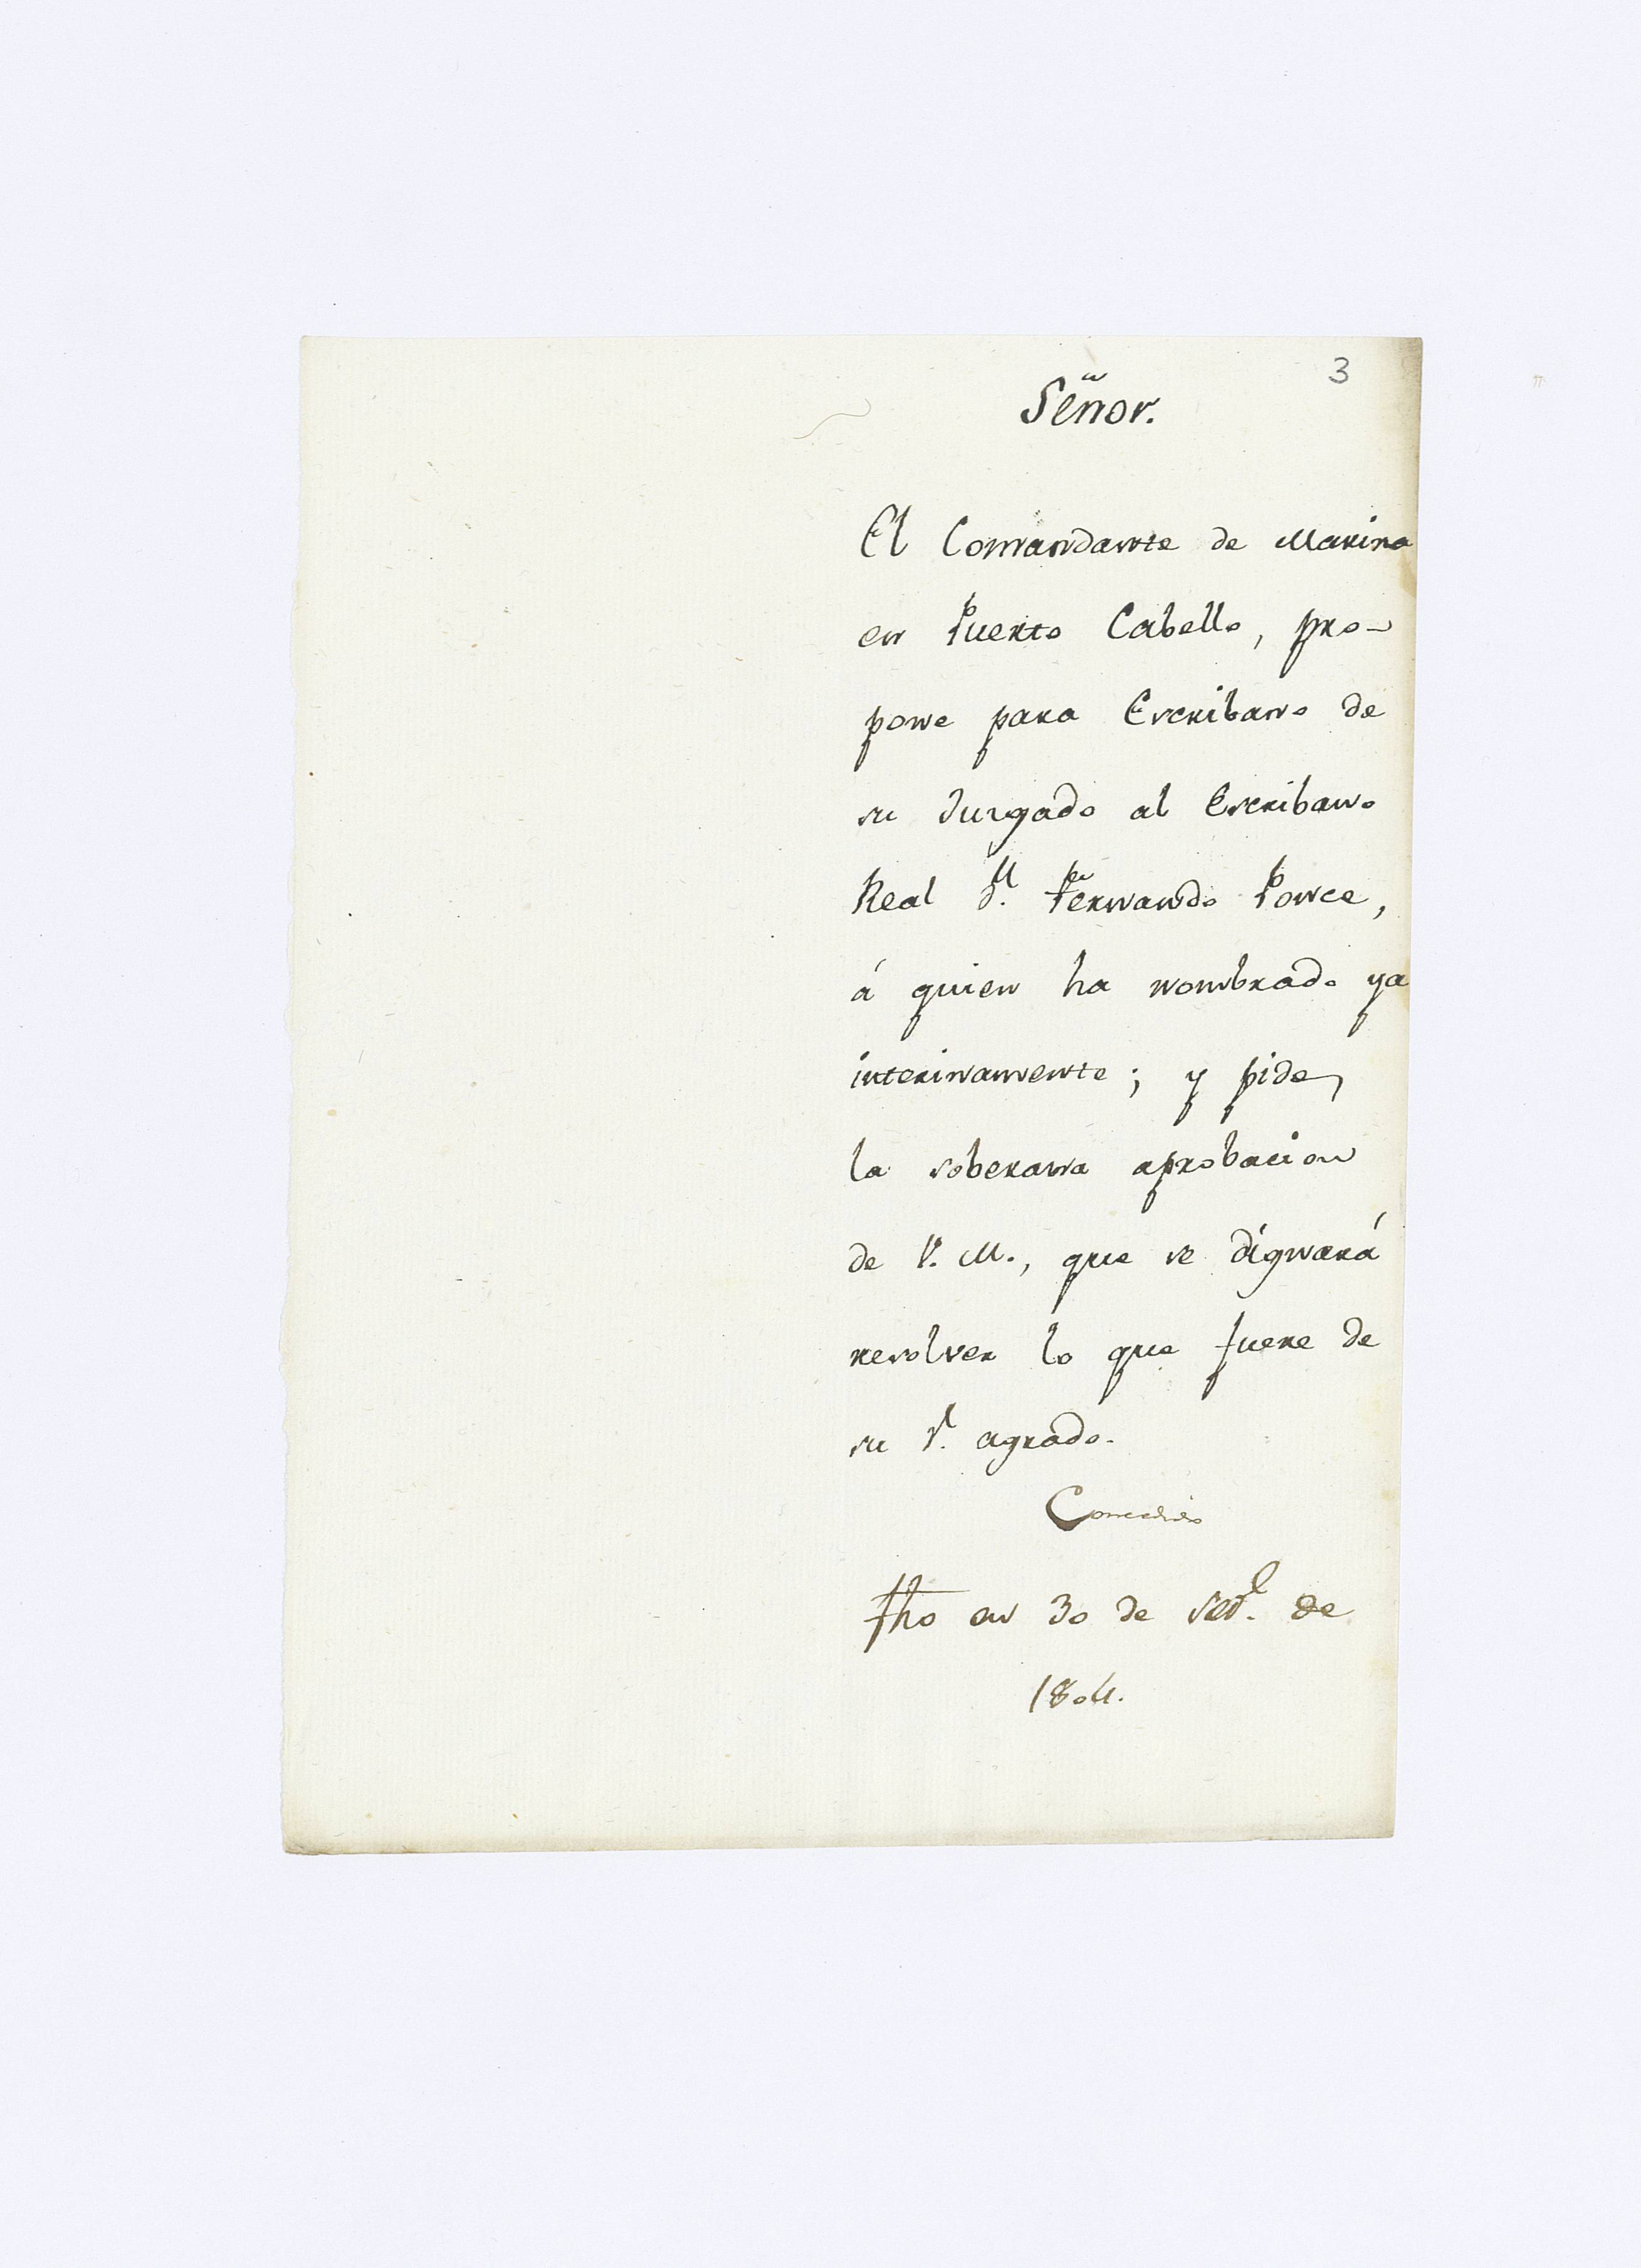 3
Señor.
El Comandante de Marina
en Puerto Cabello, pro-
pone para Escribano de
su Juzgado al Escribano
Real Dn. Fernando Ponce,
á quien ha nombrado ya
interinamente; y pide
la soberana aprobacion
de V. M., que se dignará
resolver lo que fuere de
su Rl. agrado.
Concedido
fho en 30 de Set.e de
1804.